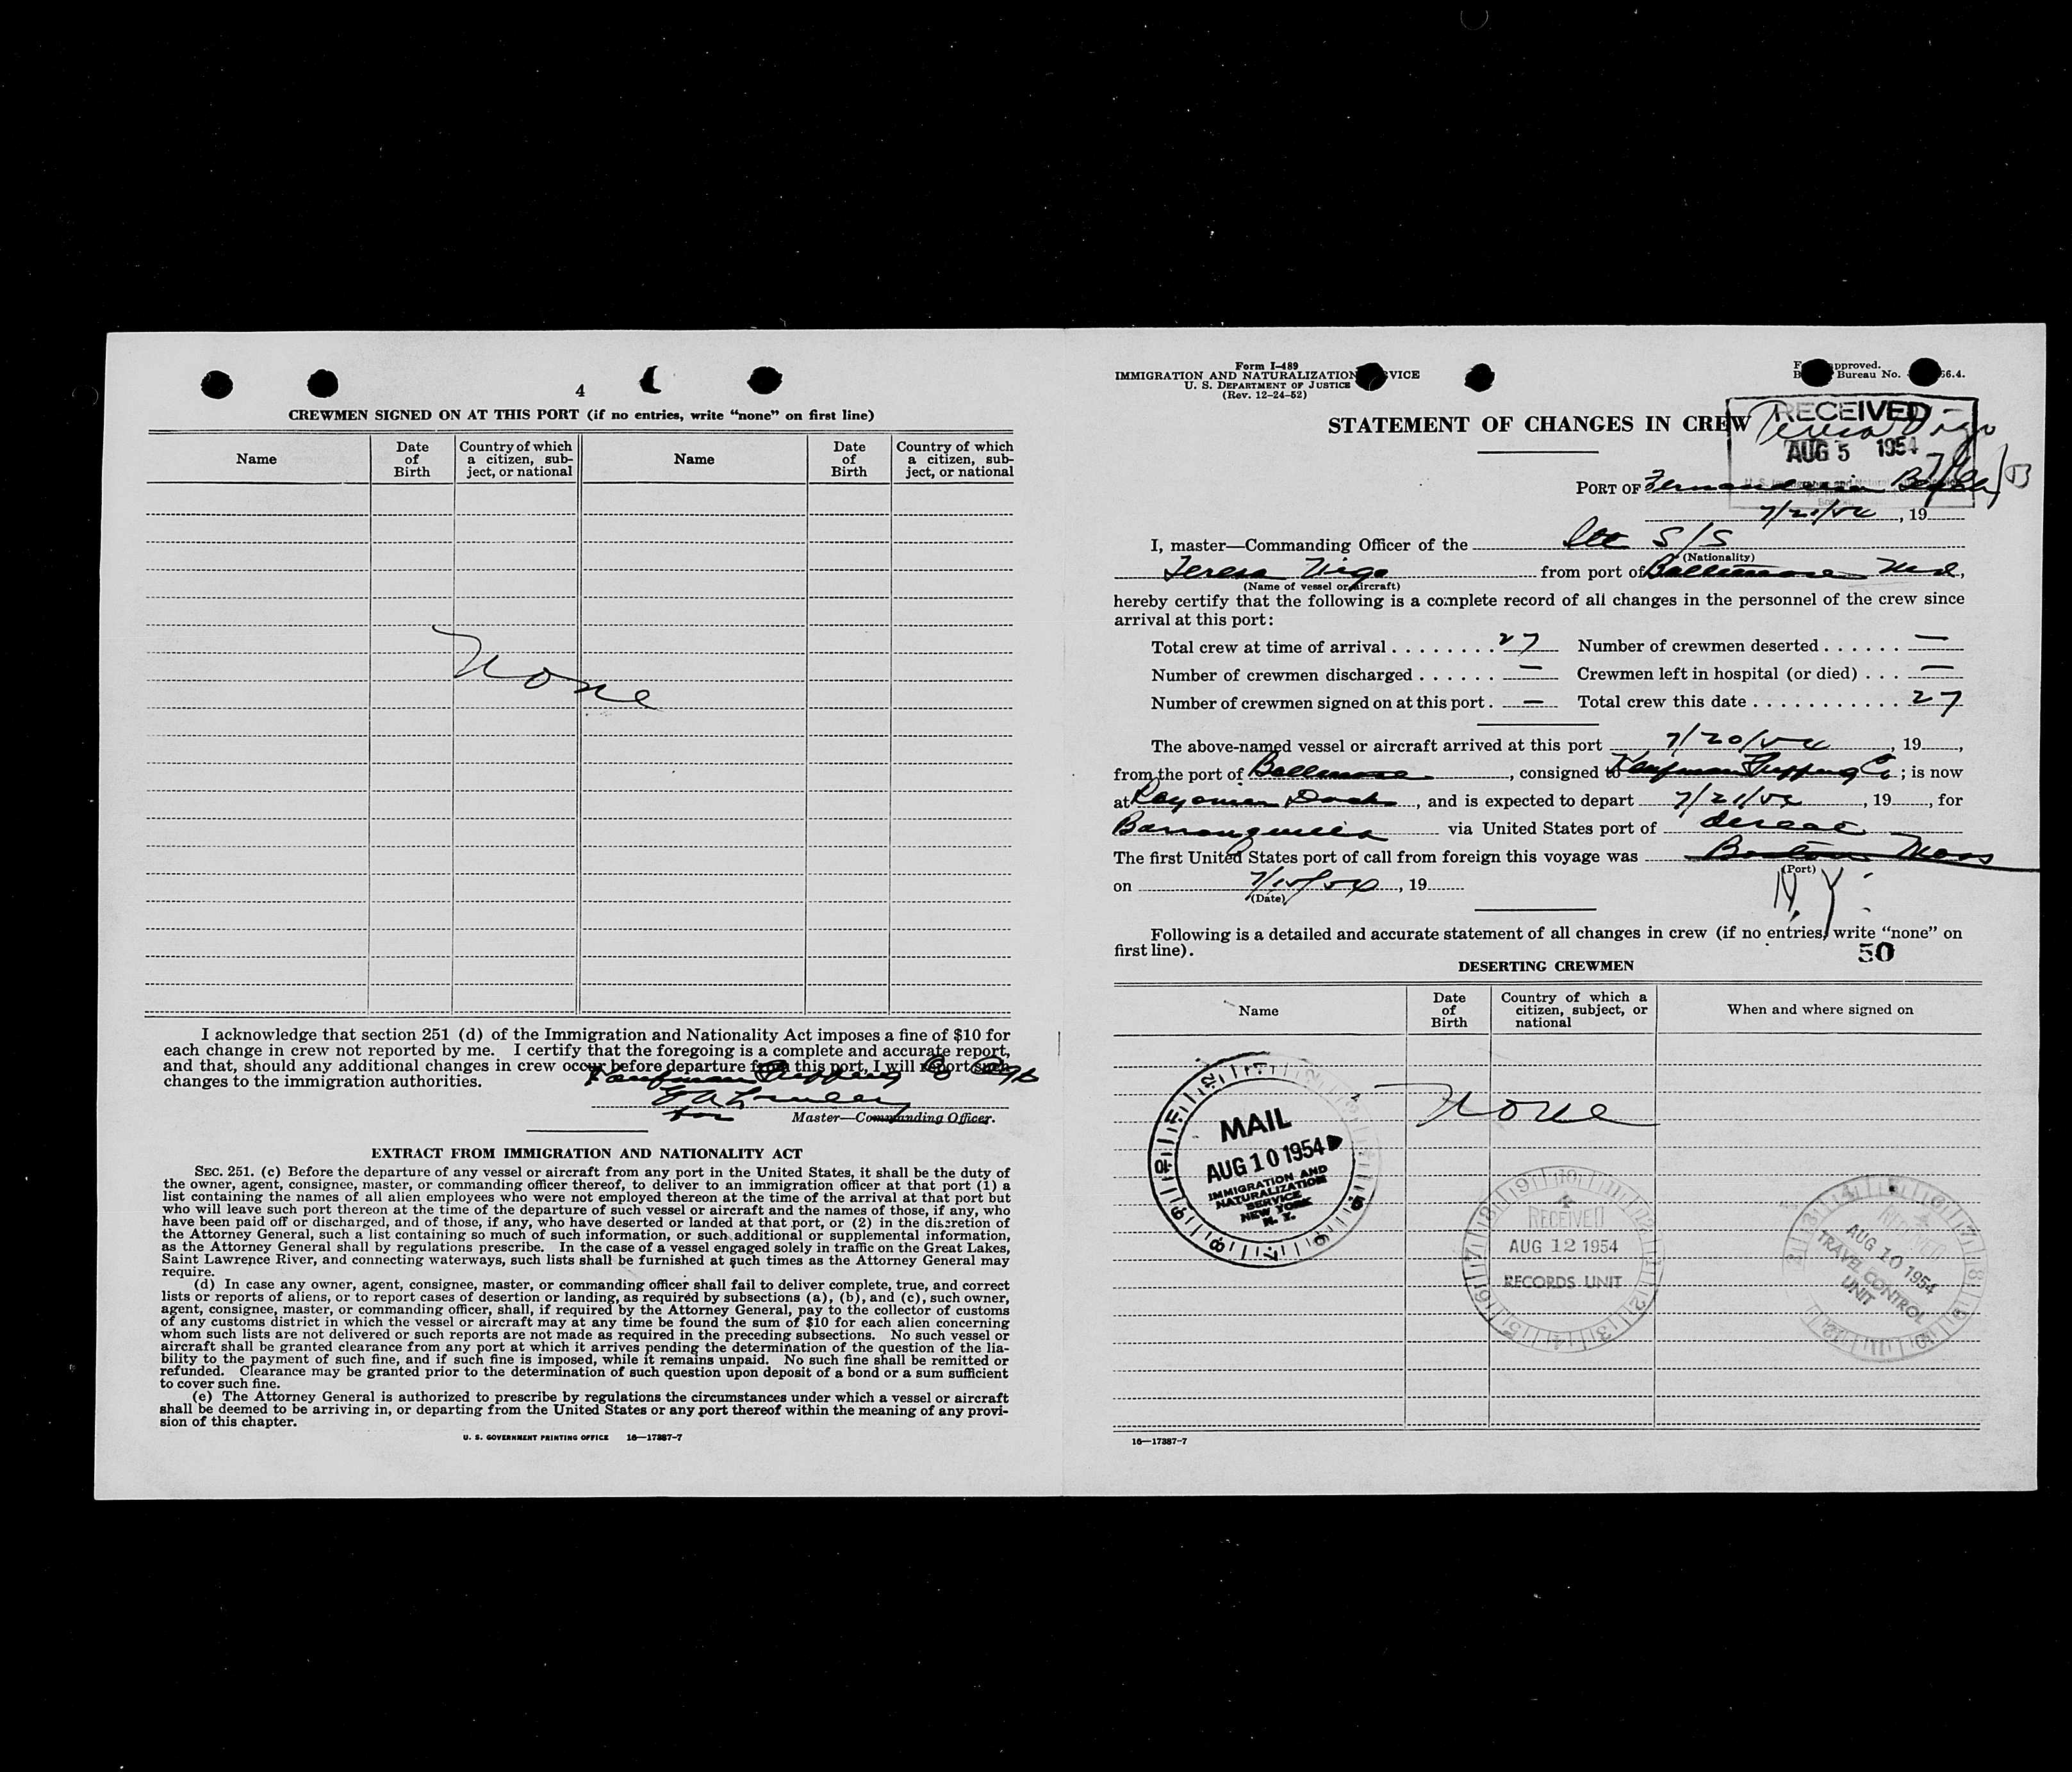 4
CREWMEN SIGNED ON AT THIS PORT (if no entries, write “none” on first line)
Name
Date of Birth
Country of which a citizen, subject, or national
Name
Date of Birth
Country of which a citizen, subject, or national
None
I acknowledge that section 251 (d) of the Immigration and Nationality Act imposes a fine of $10 for
each change in crew not reported by me. I certify that the foregoing is a complete and accurate report,
and that, should any additional changes in crew occur before departure from this port, I will report such
changes to the immigration authorities.
Kaufman Shipping Co Agts
for
Master—Commanding Officer.
EXTRACT FROM IMMIGRATION AND NATIONALITY ACT
SEC. 251. (c) Before the departure of any vessel or aircraft from any port in the United States, it shall be the duty of
the owner, agent, consignee, master, or commanding officer thereof, to deliver to an immigration officer at that port (1) a
list containing the names of all alien employees who were not employed thereon at the time of the arrival at that port but
who will leave such port thereon at the time of the departure of such vessel or aircraft and the names of those, if any, who
have been paid off or discharged, and of those, if any, who have deserted or landed at that port, or (2) in the discretion of
the Attorney General, such a list containing so much of such information, or such additional or supplemental information,
as the Attorney General shall by regulations prescribe. In the case of a vessel engaged solely in traffic on the Great Lakes,
Saint Lawrence River, and connecting waterways, such lists shall be furnished at such times as the Attorney General may
require.
(d) In case any owner, agent, consignee, master, or commanding officer shall fail to deliver complete, true, and correct
lists or reports of aliens, or to report cases of desertion or landing, as required by subsections (a), (b), and (c), such owner,
agent, consignee, master, or commanding officer, shall, if required by the Attorney General, pay to the collector of customs
of any customs district in which the vessel or aircraft may at any time be found the sum of $10 for each alien concerning
whom such lists are not delivered or such reports are not made as required in the preceding subsections. No such vessel or
aircraft shall be granted clearance from any port at which it arrives pending the determination of the question of the lia-
bility to the payment of such fine, and if such fine is imposed, while it remains unpaid. No such fine shall be remitted or
refunded. Clearance may be granted prior to the determination of such question upon deposit of a bond or a sum sufficient
to cover such fine.
(e) The Attorney General is authorized to prescribe by regulations the circumstances under which a vessel or aircraft
shall be deemed to be arriving in, or departing from the United States or any port thereof within the meaning of any provi-
sion of this chapter.
U. S. GOVERNMENT PRINTING OFFICE 16—17387-7
Form I-489
IMMIGRATION AND NATURALIZATION VICE
U. S. DEPARTMENT OF JUSTICE
(Rev. 12-24-52)
pproved.
Bureau No. 6.4.
STATEMENT OF CHANGES IN CREW
RECEIVED
Teresa Vigo
AUG 5 1954
PORT OF Fernandina Beach
7/21/54, 19
I, master—Commanding Officer of the S/S
(Nationality)
Teresa Vigo from port of Baltimore Md,
(Name of vessel or aircraft)
hereby certify that the following is a complete record of all changes in the personnel of the crew since
arrival at this port:
Total crew at time of arrival 27 Number of crewmen deserted —
Number of crewmen discharged — Crewmen left in hospital (or died) —
Number of crewmen signed on at this port — Total crew this date 27
The above-named vessel or aircraft arrived at this port 7/20/54, 19,
from the port of Baltimore, consigned to Kaufman Shipping Co; is now
at Rayonier Dock, and is expected to depart 7/21/54, 19, for
Barranquilla via United States port of direct
The first United States port of call from foreign this voyage was Boston Mass
(Port)
N.Y.
on 7/15/54, 19
(Date)
Following is a detailed and accurate statement of all changes in crew (if no entries, write “none” on
first line).
50
DESERTING CREWMEN
Name
Date of Birth
Country of which a citizen, subject, or national
When and where signed on
None
MAIL
AUG 10 1954
IMMIGRATION AND
NATURALIZATION
SERVICE
NEW YORK
N. Y.
RECEIVED
AUG 12 1954
RECORDS UNIT
AUG 10 1954
TRAVEL CONTROL
UNIT
16—17387-7